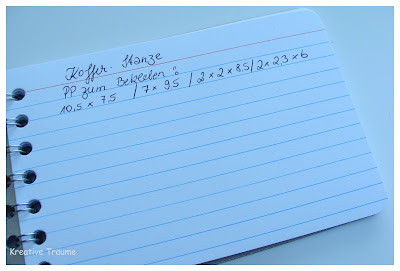 Koffer-Stanze
PP zum Bekleben:
10,5 x 7,5 / 7 x 9,5 / 2 x 2 x 8,5 / 2 x 2,3 x 6
Kreative Träume